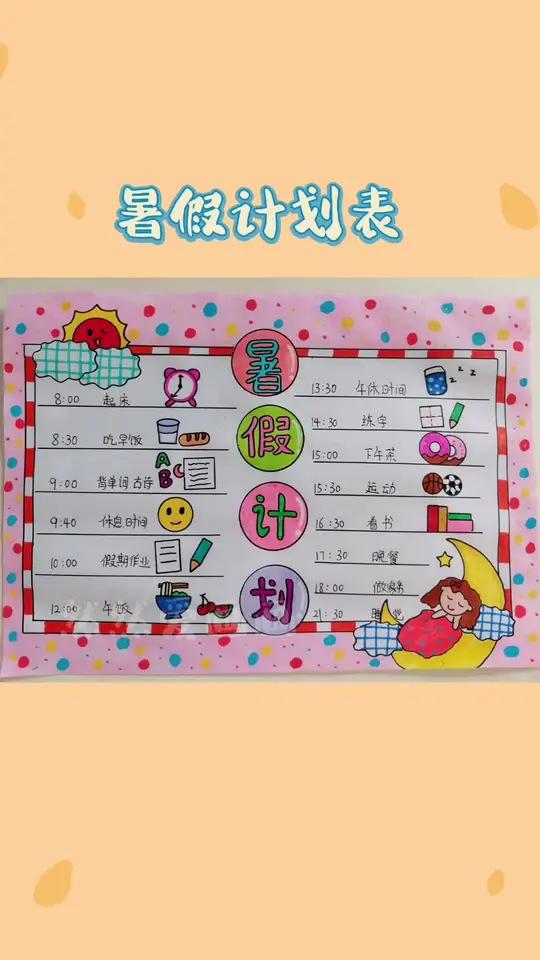 暑假计划表
暑假计划
8:00 起床
8:30 吃早饭
9:00 背单词 古诗
ABC
9:40 休息时间
10:00 假期作业
12:00 午饭
13:30 午休时间
z z z
14:30 练字
15:00 下午茶
15:30 运动
16:30 看书
17:30 晚餐
18:00 做家务
21:30 睡觉